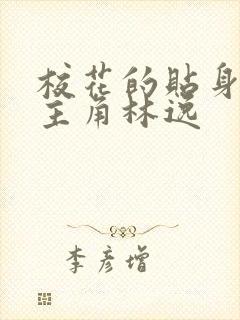 校花的贴身
主角林逸
李彦增